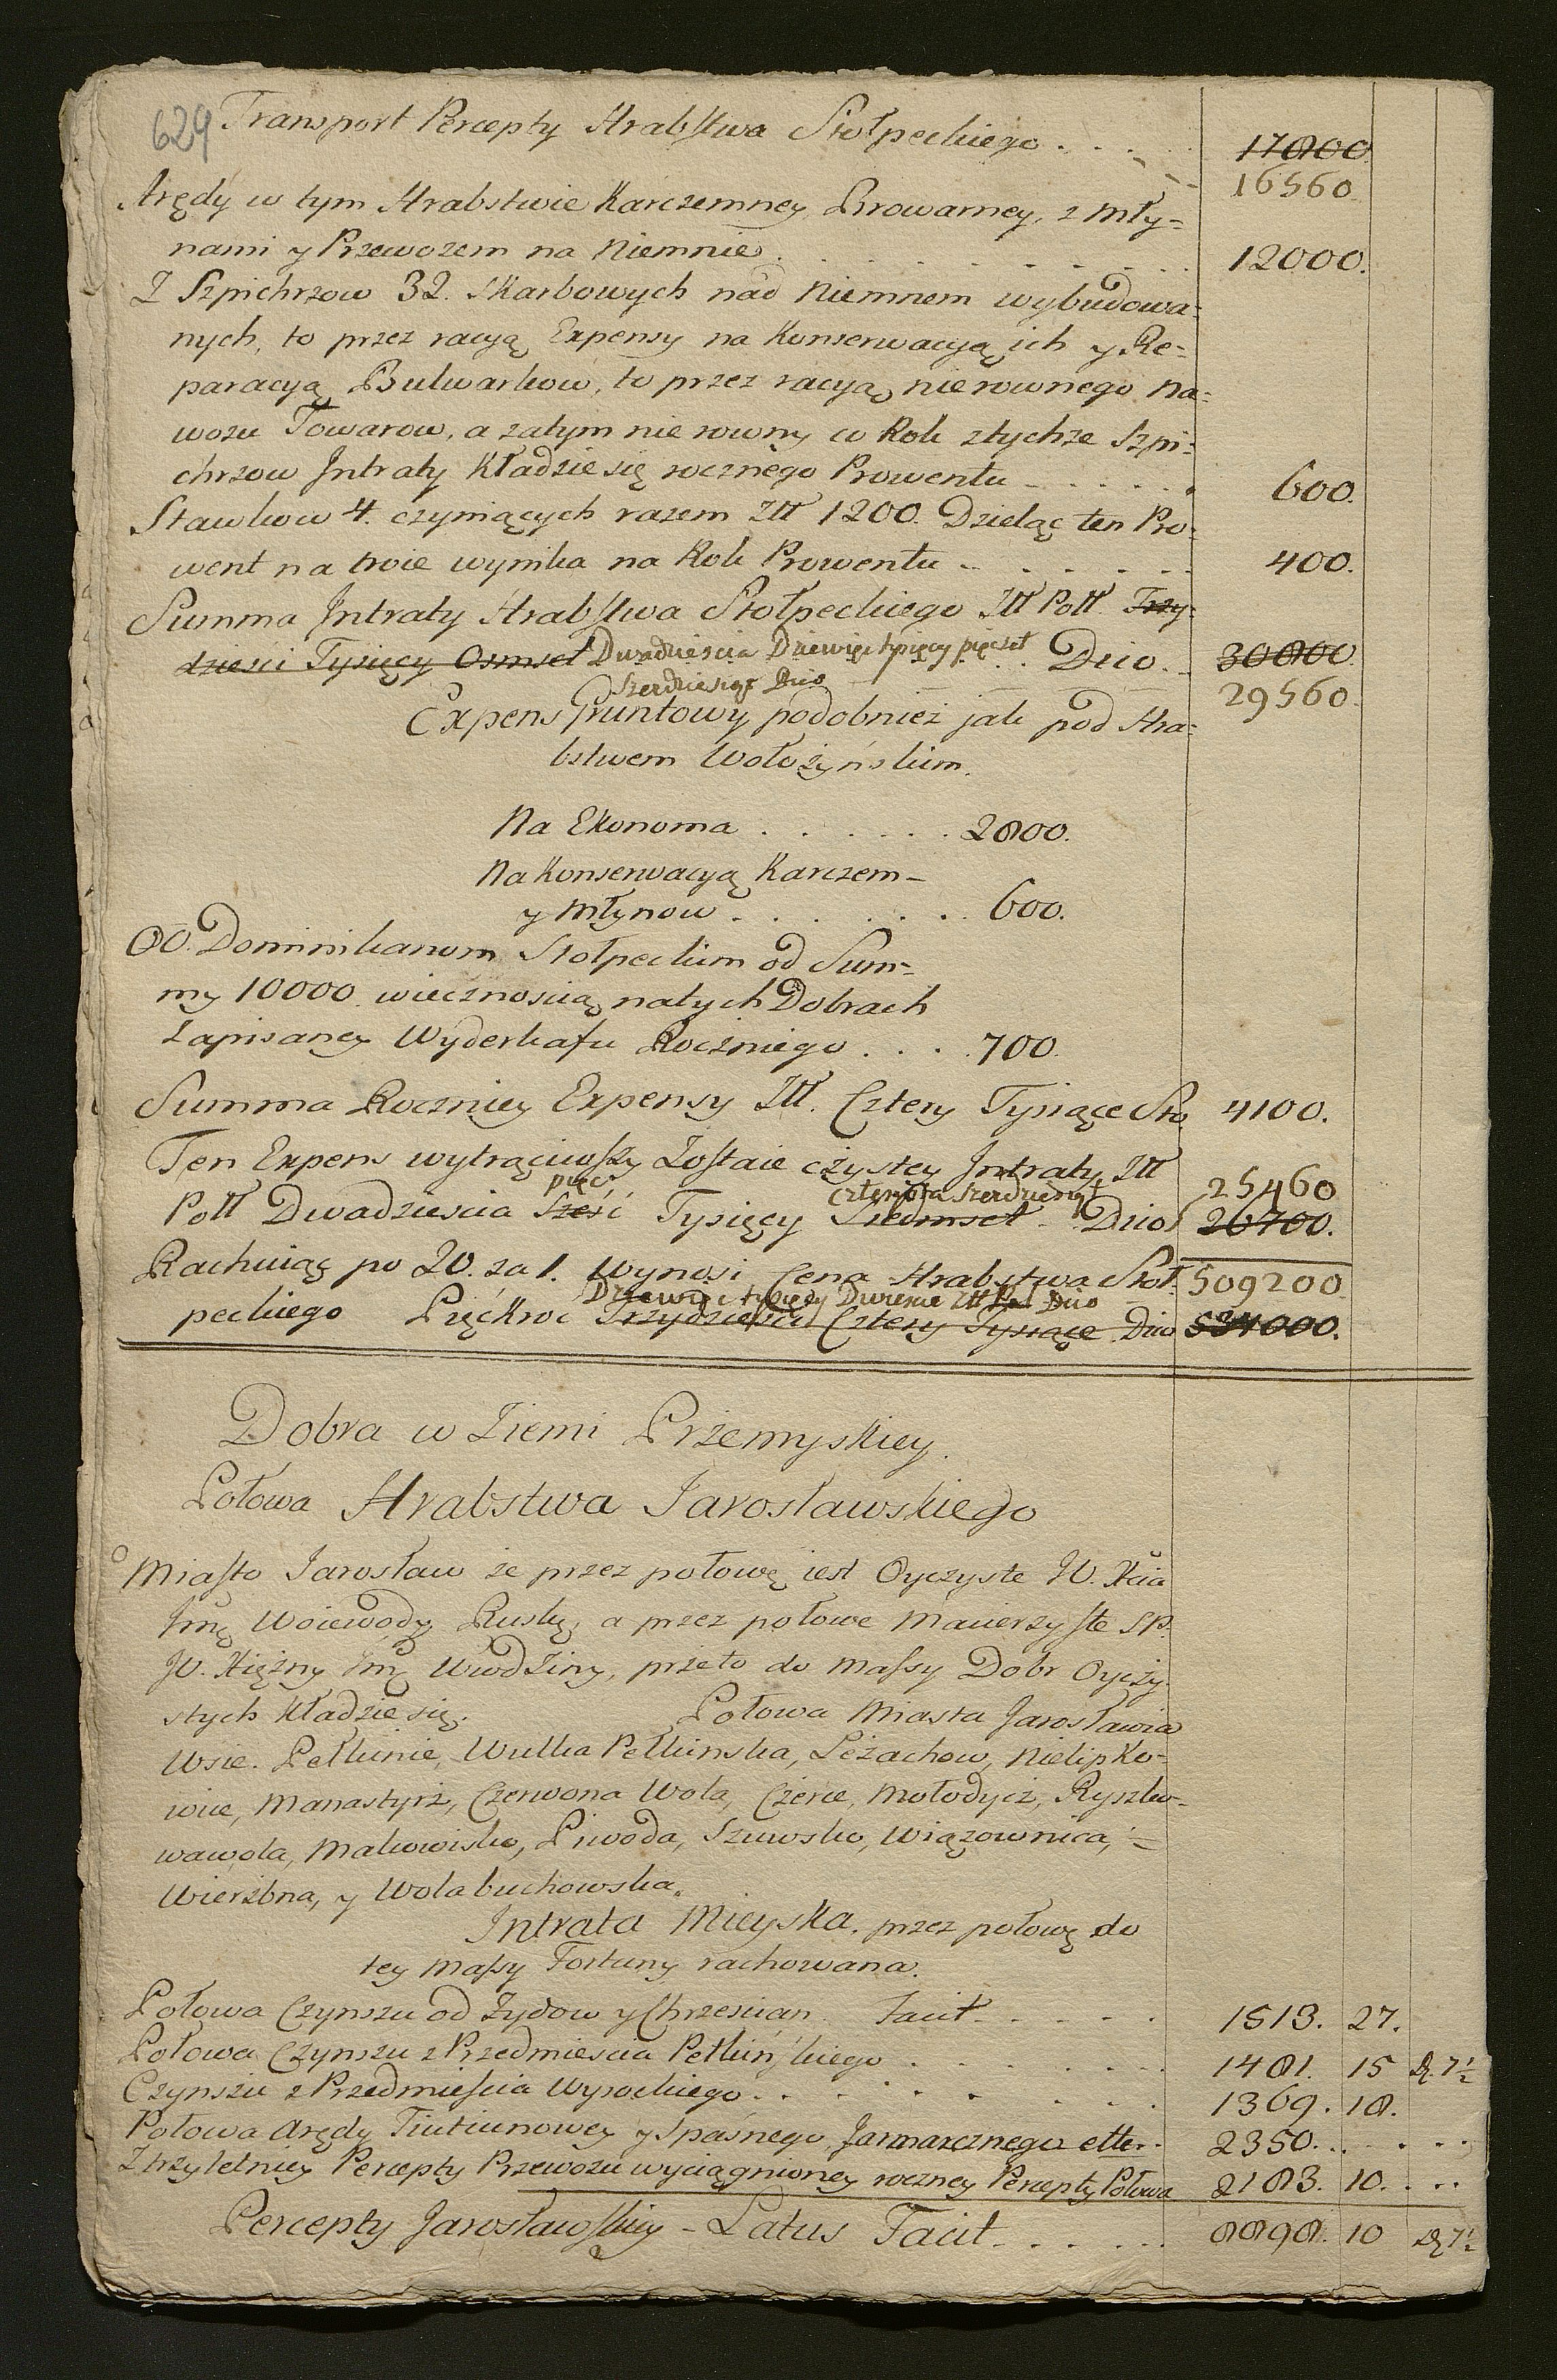 629
Transport Percepty Hrabstwa Stołpeckiego . . . . 17800
16560
Arędy w tym Hrabstwie Karczemney Browarney, z Mły=
nami y Przewozem na Niemnie . . . . . . . . 12000.
Z Szpichrzow 32. Skarbowych nad Niemnem wybudowa=
nych, to przez racyą Expensy na Konserwacyą ich y Re=
paracyą Bulwarkow, to przez racyą nierownego na=
wozu Towarow, a zatym nie rowny co Rok ztychże Szpi=
chrzow Intraty Kładzie się rocznego Prowentu . . . . . . 600.
Stawkow 4. czyniących razem Złł 1200. Dzieląc ten Pro=
went na troie wynika na Rok Prowentu . . . . . . 400.
Summa Intraty Hrabstwa Stołpeckiego Złł Poll Trzy=
dziesci Tysięcy Osmset Dwadziescia Dziewięc tysięcy pięcset . . . Dico. 30800
Szesdziesiąt Dico 29560.
Expens Gruntowy podobnież jak pod Hra=
bstwem Wołożyńskim.
Na Ekonoma . . . . . . . 2800.
Na Konserwacyą Karczem=
y Młynow . . . . . . . 600.
OO. Dominikanom Stołpeckim od Sum=
my 10000 wiecznoscią na tych Dobrach
Zapisaney Wyderkafu Roczniego . . . . 700.
Summa Roczniey Expensy Złł. Cztery Tysiące Sto 4100.
Ten Expens wytrąciwszy Zostaie czystey Intraty Złł
pięc czterysta szesdziesiąt 25460
Poll Dwadziescia Szesć Tysięcy Siedmset - Dico 26700.
Rachuiąc po 20. za 1. Wynosi Cena Hrabstwa Stoł= 509200
Dziewięc tysięcy Dwiescie Złł Pol Dico
peckiego Pięckroc Trzydziesci Cztery Tysiące Dico 534000.
Dobra w Ziemi Przemyskiey.
Połowa Hrabstwa Jarosławskiego
Miasto Jarosław że przez połowę iest Oyczyste JO. Xcia
Jmę Woiewody Ruskę, a przez połowe Macierzyste SP.
JO. Xiężny Jmę Wwdziny, przeto do Massy Dobr Oyczy=
stych kładzie się. Połowa Miasta Jarosławia
Wsie. Pełkinie, Wulka Pełkinska, Leżachow, Nielipko=
wice, Manastyrż, Czerwona Wola, Czerce, Mołodycż, Ryszko=
wawola, Makowisko, Piwoda, Szuwsko, Wiązownica,
Wierżbna, y Wola buchowska.
Intrata Mieyska. przez połowę do
tey Massy Fortuny rachowana.
Połowa Czynszu od Żydow y Chrzescian Facit . . . . . 1513. 27.
Połowa Czynszu z Przedmiescia Pełkińskiego . . . . . . . 1481. 15 D. 7½
Czynszu z Przedmiescia Wysockiego . . . . . . . . . 1369. 18.
Połowa Arędy Tiutiunowey y Spaśnego Jarmarcznego etter. 2350. . . . . .
Z trzyletniey Percepty Przewozu wyciągnioney roczney Percepty Połowa 2183. 10. . . .
Percepty Jarosławskiey - Latus Facit . . . . . . 8898. 10 D 7½